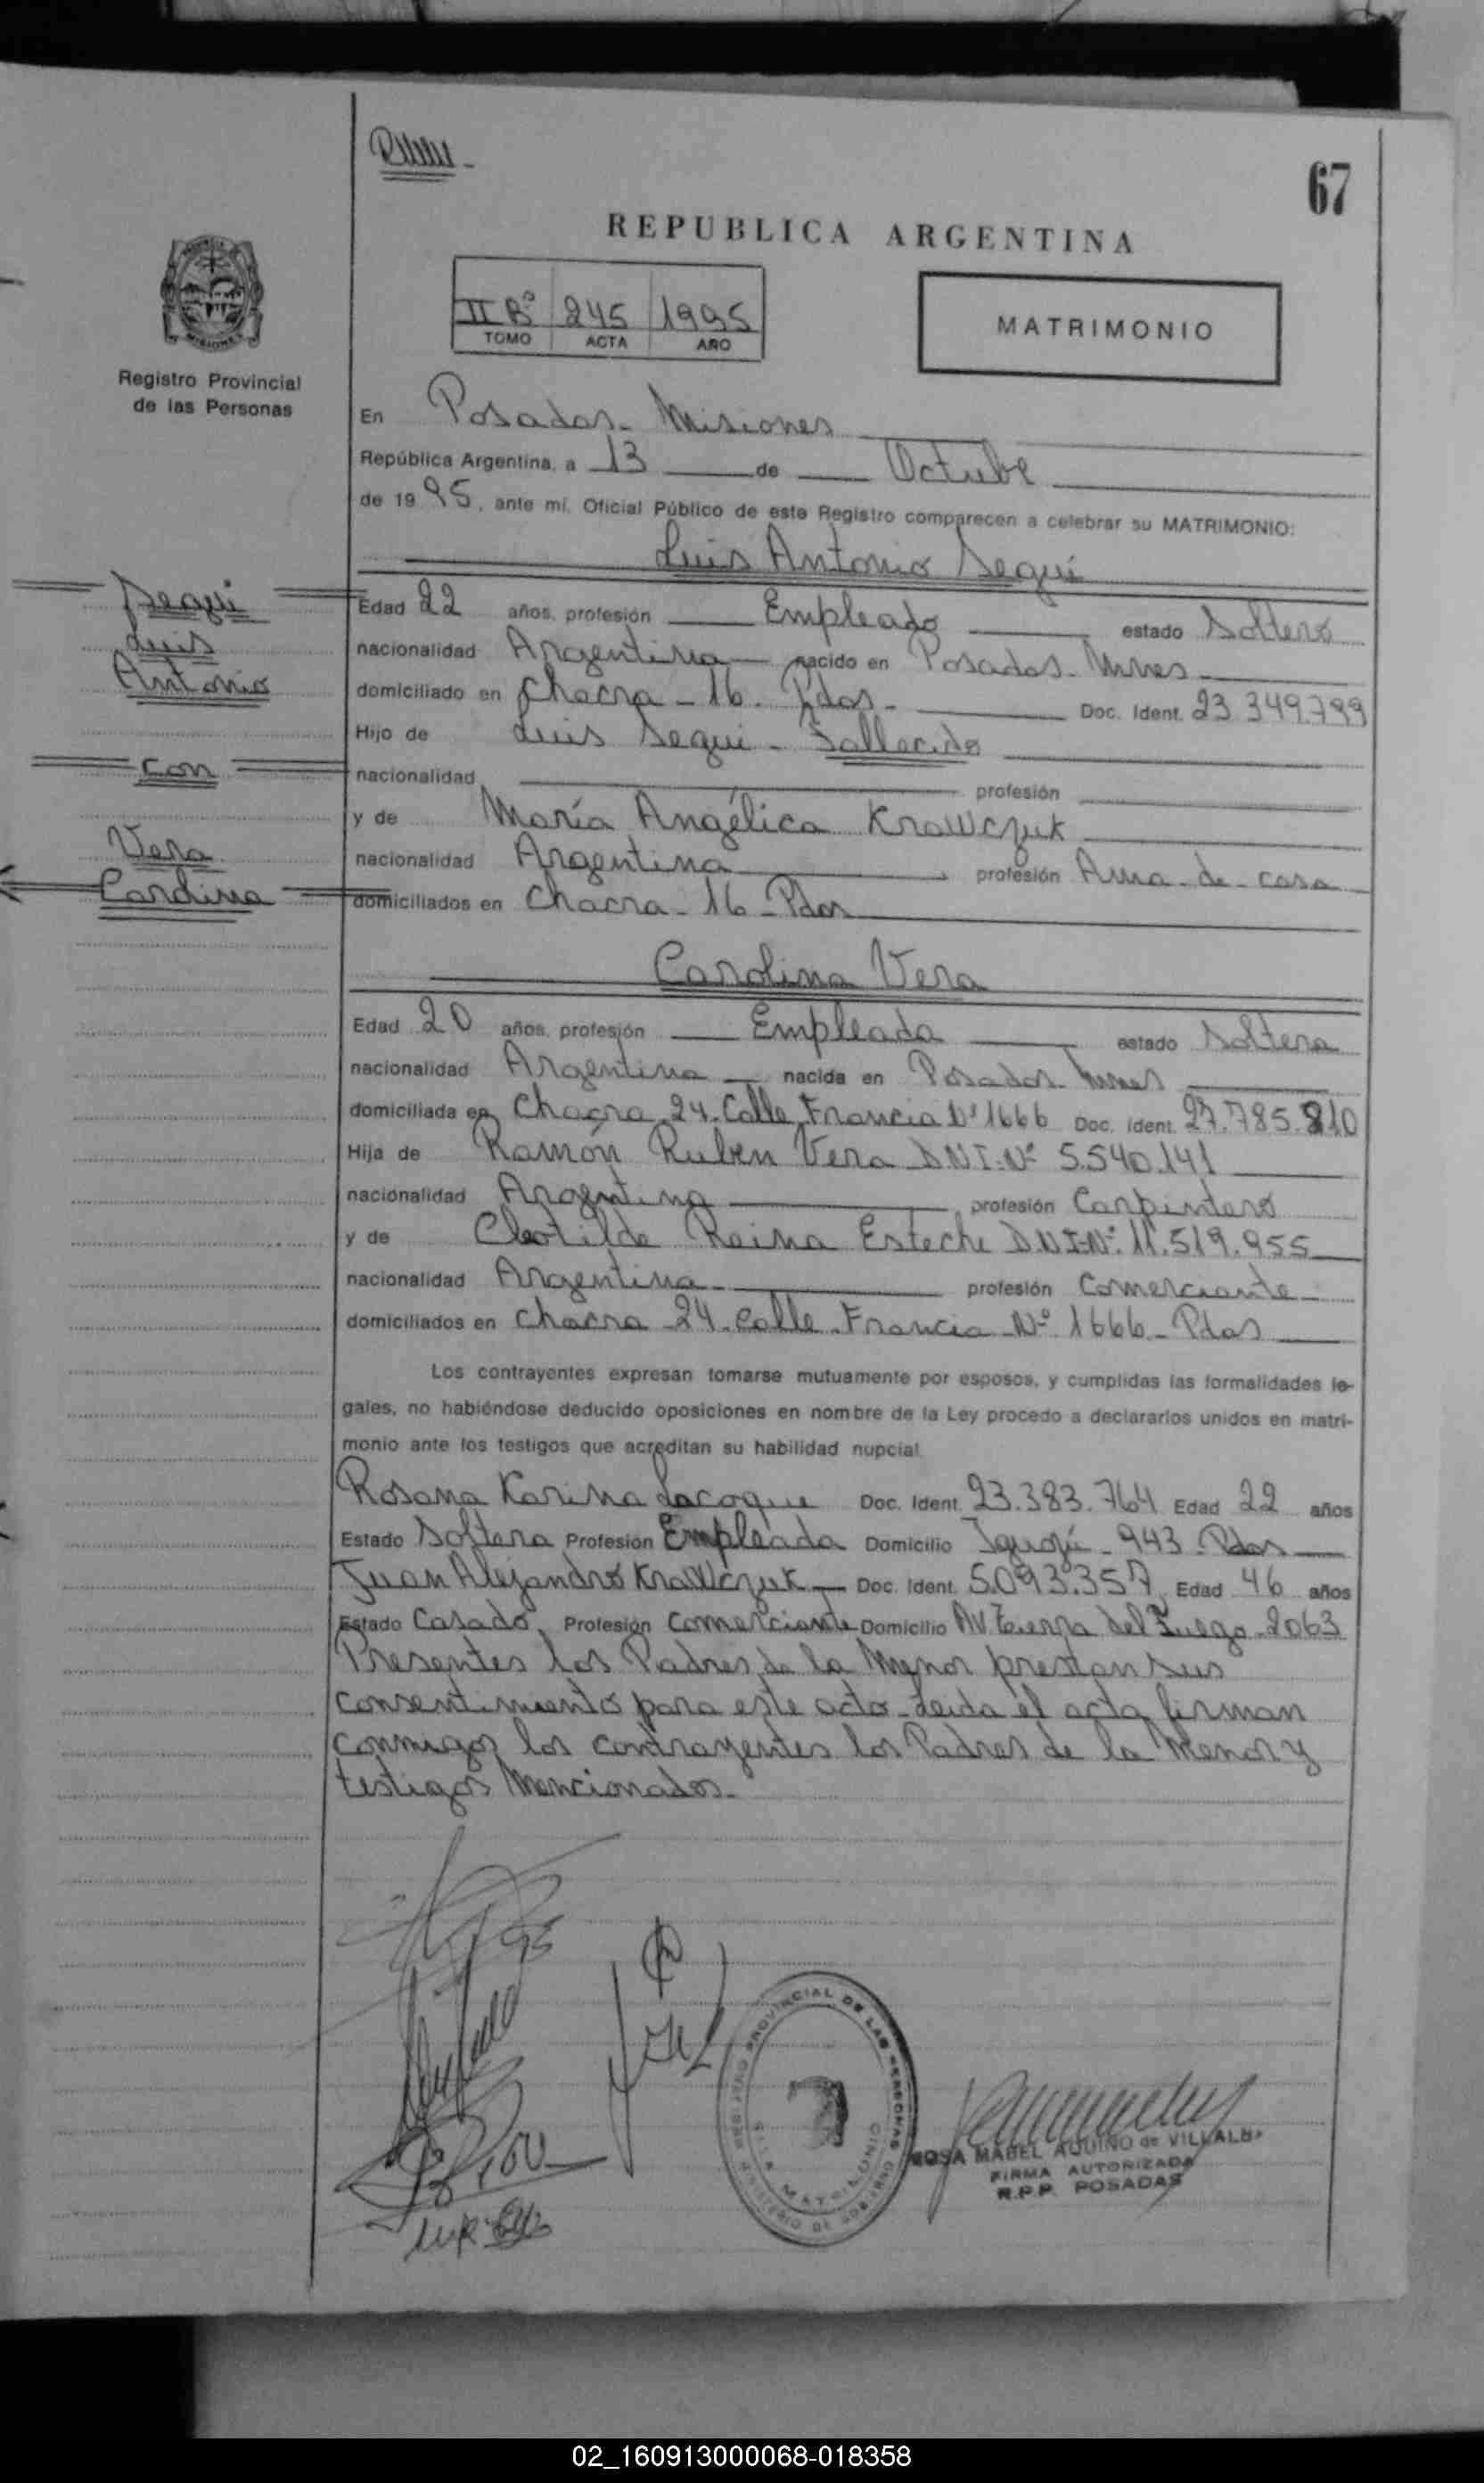 67
REPUBLICA ARGENTINA
II Bº 245 1995
TOMO ACTA AÑO
MATRIMONIO
Registro Provincial
de las Personas
En Posadas - Misiones
República Argentina, a 13 de Octubre
de 1995, ante mí. Oficial Público de este Registro comparecen a celebrar su MATRIMONIO:
Luis Antonio Segui
Segui
Luis
Antonio
con
Vera
Carolina
Edad 22 años, profesión Empleado estado Soltero
nacionalidad Argentina nacido en Posadas - Mnes
domiciliado en Chacra - 16 - Pdas - Doc. Ident. 23.349.799
Hijo de Luis Segui - Fallecido
nacionalidad profesión
y de María Angélica Krawczuk
nacionalidad Argentina profesión Ama - de - casa
domiciliados en Chacra - 16 - Pdas
Carolina Vera
Edad 20 años, profesión Empleada estado Soltera
nacionalidad Argentina nacida en Posadas - Mnes
domiciliada en Chacra 24 - Calle Francia Nº 1666 Doc. Ident. 27.785.810
Hija de Ramón Ruben Vera D.N.I. Nº 5.540.141
nacionalidad Argentina profesión Carpintero
y de Clotilde Reina Esteche D.N.I. Nº 11.519.955
nacionalidad Argentina profesión Comerciante
domiciliados en Chacra - 24 - Calle - Francia - Nº 1666 - Pdas
Los contrayentes expresan tomarse mutuamente por esposos, y cumplidas las formalidades le-
gales, no habiéndose deducido oposiciones en nombre de la Ley procedo a declararlos unidos en matri-
monio ante los testigos que acreditan su habilidad nupcial.
Rosana Karina Lacoque Doc. Ident. 23.383.764 Edad 22 años
Estado Soltera Profesión Empleada Domicilio 943 - Pdas
Juan Alejandro Krawczuk Doc. Ident. 5.093.357 Edad 46 años
Estado Casado Profesión Comerciante Domicilio Av. Tierra del Fuego - 2063
Presentes los Padres de la Menor prestan sus
consentimiento para este acto - Leida el acta firman
conmigos los contrayentes los Padres de la Menor y
testigos Mencionados -
REGISTRO PROVINCIAL DE LAS PERSONAS
MINISTERIO DE GOBIERNO
ROSA MABEL AQUINO de VILLALBA
FIRMA AUTORIZADA
R.P.P. POSADAS
02_160913000068-018358